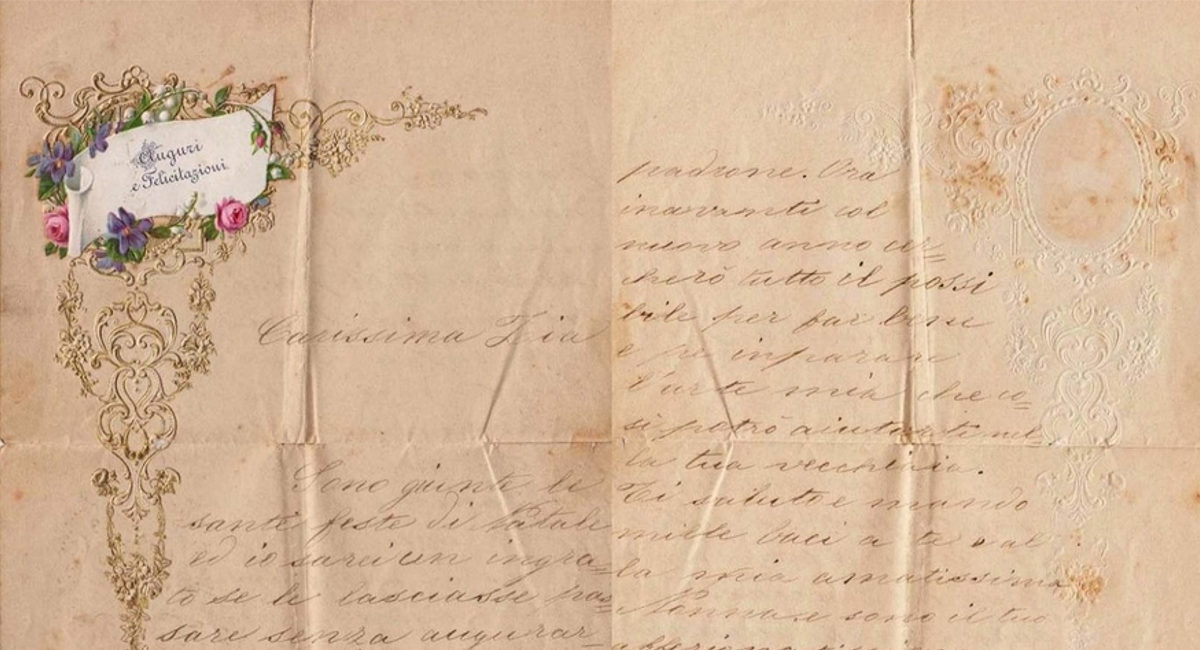 Auguri
e Felicitazioni
Carissima Zia
Sono giunte le
sante feste di Natale
ed io sarei un ingra=
to se le lasciasse pas=
sare senza augurar=
padrone. Ora
inavanti col
nuovo anno cer=
cherò tutto il possi
bile per far bene
e per imparare
l'arte mia che co=
sì potrò aiutarti nel=
la tua vecchiaia.
Ti saluto e mando
mille baci a te e al
la mia amatissima
Nonna e sono il tuo